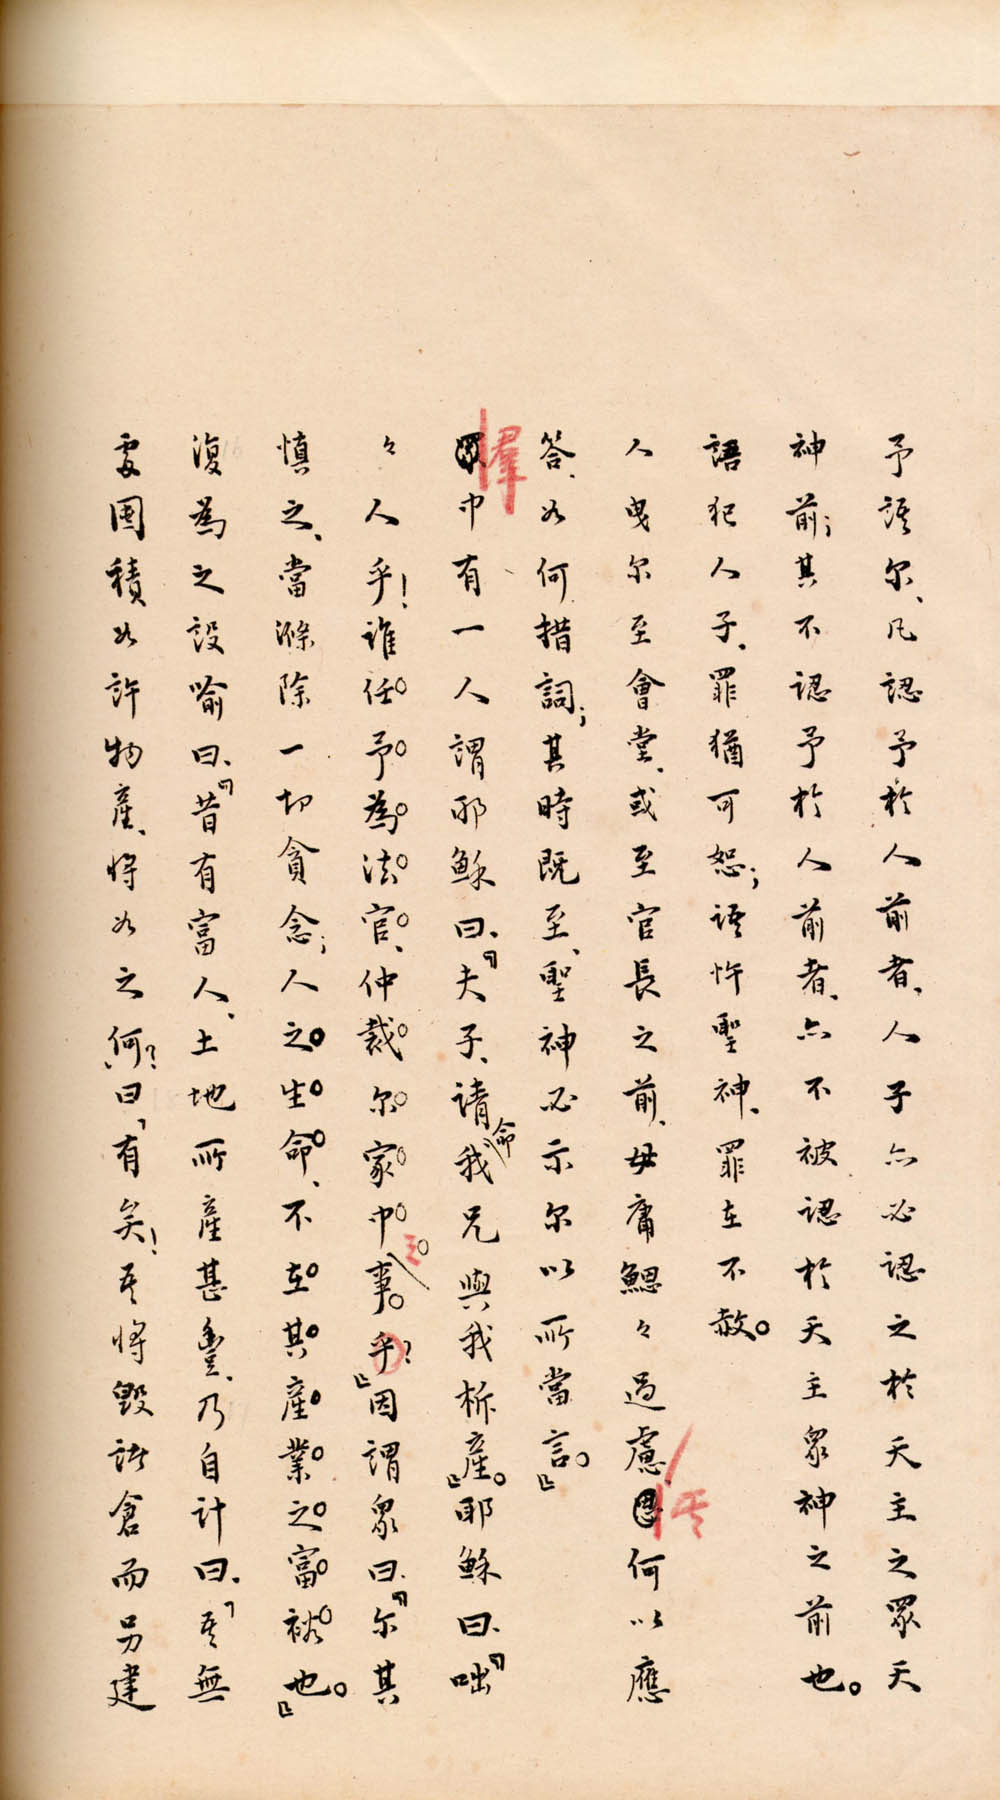 予語尔、凡認予於人前者、人子亦必認之於天主之眾天
神前；其不認予於人前者、亦不被認於天主眾神之前也。
語犯人子、罪猶可恕；語忤聖神、罪在不赦。
人曳尔至會堂、或至官長之前、毋庸鰓々過慮、何以應
答、如何措詞；其時既至、聖神必示尔以所當言。』
群中有一人謂耶穌曰、『夫子、請命我兄與我析產。』耶穌曰、『咄
々人乎！誰任予為法官、仲裁尔家中之事乎？』因謂眾曰、『尔其
慎之、當滌除一切貪念；人之生命、不在其產業之富裕也。』
復為之設喻曰、『昔有富人、土地所產甚豐、乃自計曰、「吾無
處囤積如許物產、將如之何？」曰、「有矣！吾將毀諸倉而另建